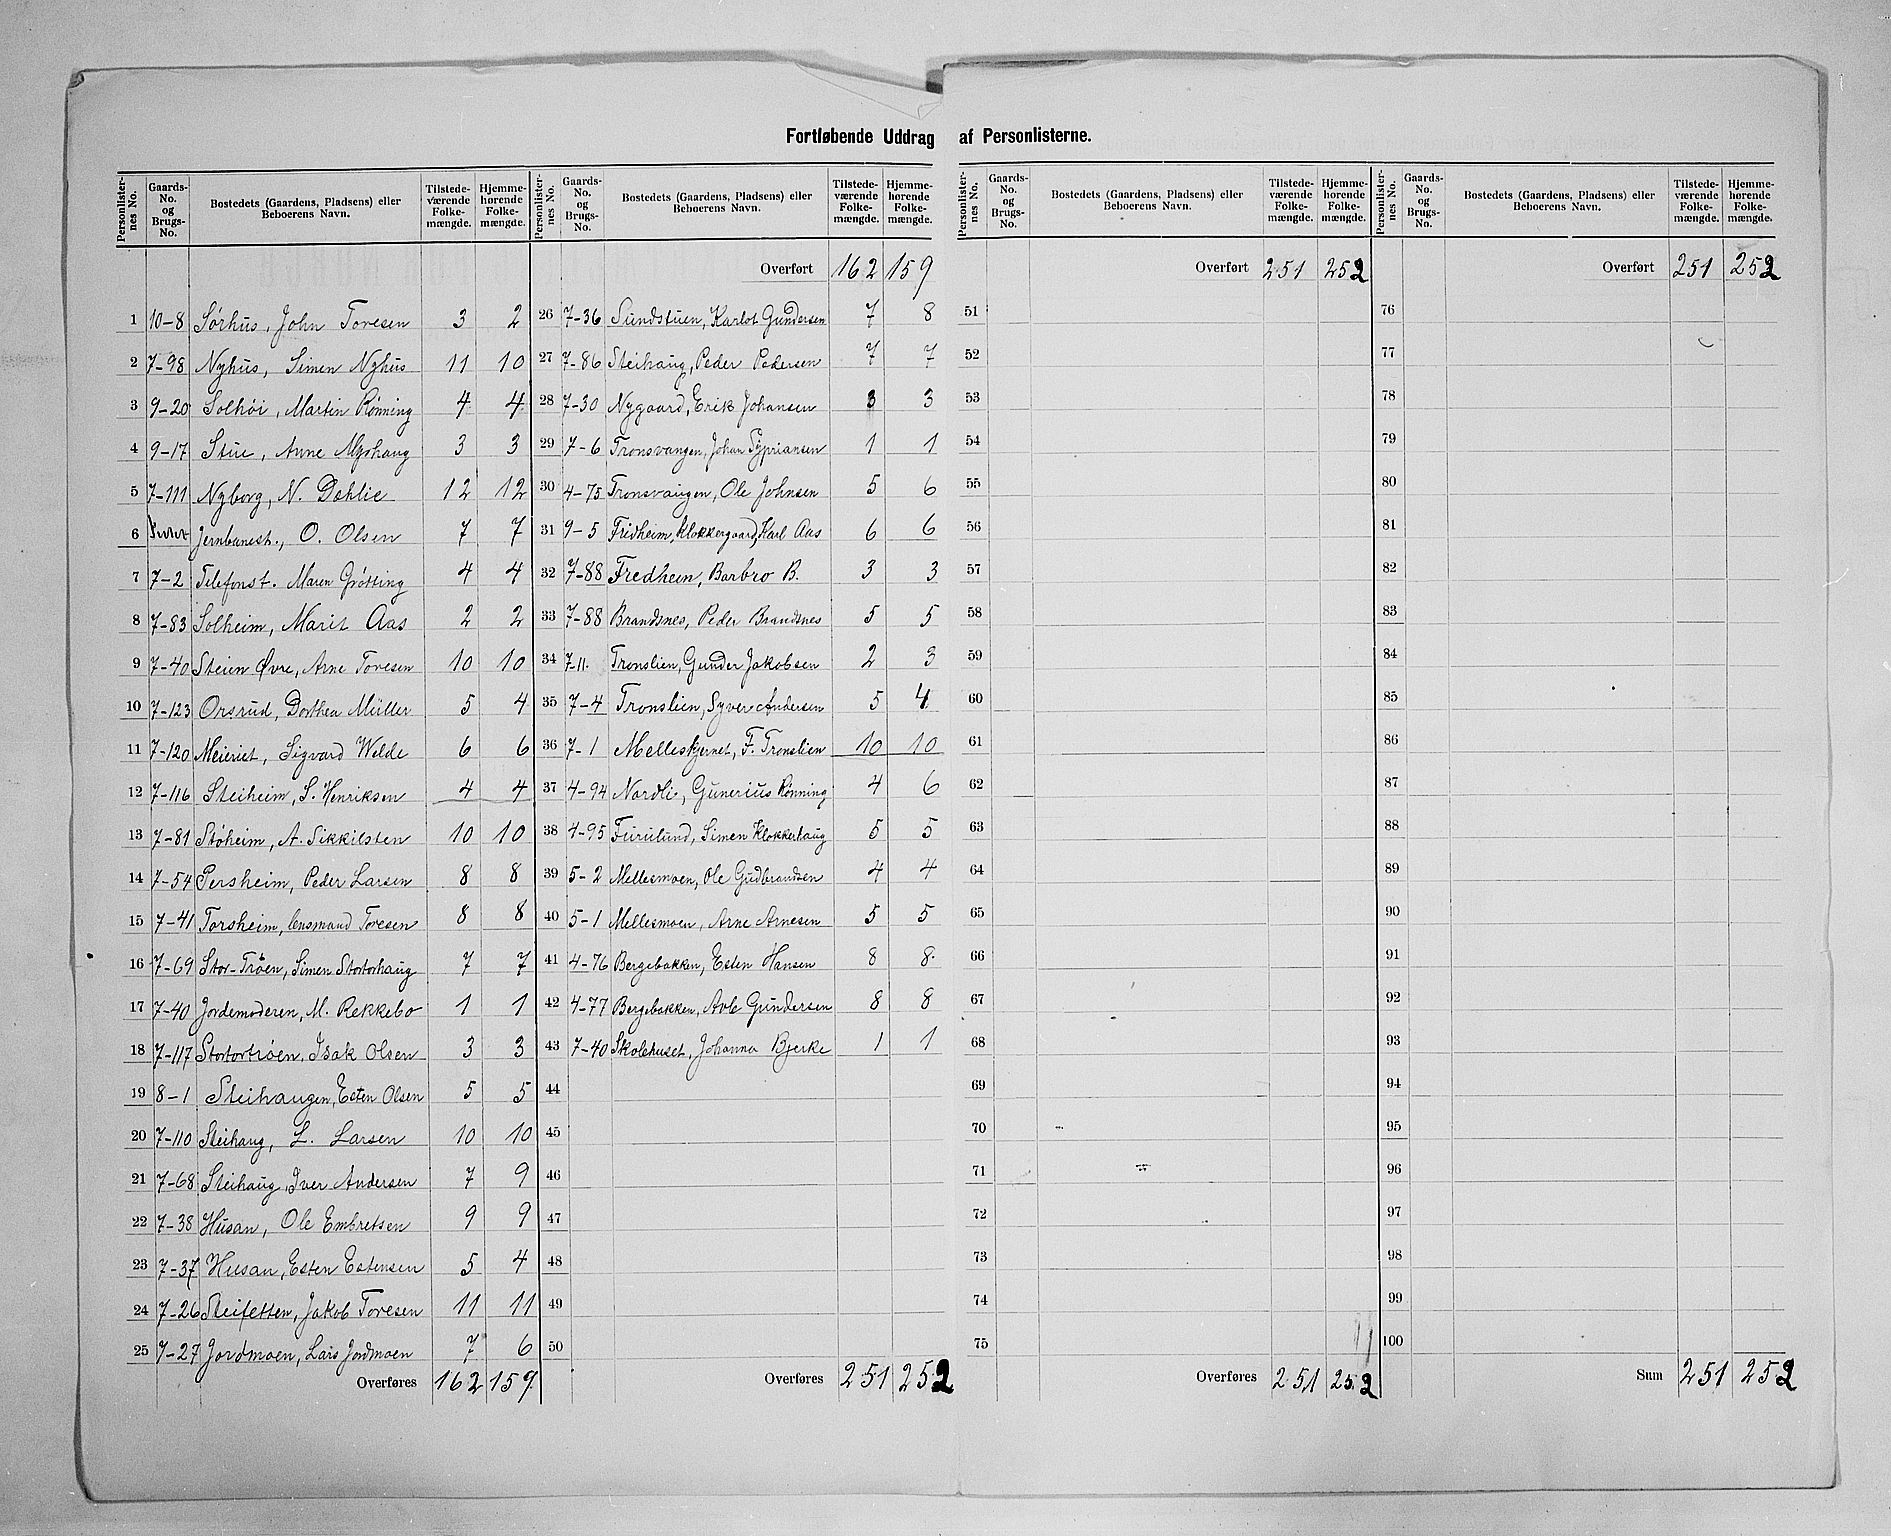 Fortløbende Uddrag af Personlisterne.
Personlister-nes No. Gaards-No. og Brugs-No. Bostedets (Gaardens, Pladsens) eller Beboerens Navn. Tilstede-værende Folke-mængde. Hjemme-hørende Folke-mængde.
1 10-8 Sørhus, John Toresen 3 2
2 7-98 Nyhus, Simen Nyhus 11 10
3 9-20 Solhøi, Martin Rønning 4 4
4 9-17 Stue, Anne Moshaug 3 3
5 7-111 Nyborg, N. Dahlie 12 12
6 Jernbanest., O. Olsen 7 7
7 7-2 Telefonst. Maren Grøtting 4 4
8 7-83 Solheim, Marit Aas 2 2
9 7-40 Steien Øvre, Arne Toresen 10 10
10 7-123 Orsrud, Dorthea Müller 5 4
11 7-120 Meieriet, Sigvard Welde 6 6
12 7-116 Steiheim, S. Henriksen 4 4
13 7-81 Støheim, A. Sikkilsten 10 10
14 7-54 Persheim, Peder Larsen 8 8
15 7-41 Torsheim, lensmand Toresen 8 8
16 7-69 Stor-Trøen, Simen Stortorhaug 7 7
17 7-40 Jordemoderen, M. Rekkebo 1 1
18 7-117 Stortortrøen, Isak Olsen 3 3
19 8-1 Steihaugen, Esten Olsen 5 5
20 7-110 Steihaug, L. Larsen 10 10
21 7-68 Steihaug, Iver Andersen 7 9
22 7-38 Husan, Ole Embretsen 9 9
23 7-37 Husan, Esten Estensen 5 4
24 7-26 Steifetten, Jakob Toresen 11 11
25 7-27 Jordmoen, Lars Jordmoen 7 6
Overføres 162 159
Personlister-nes No. Gaards-No. og Brugs-No. Bostedets (Gaardens, Pladsens) eller Beboerens Navn. Tilstede-værende Folke-mængde. Hjemme-hørende Folke-mængde.
Overført 162 159
26 7-36 Sundstuen, Karlot Gundersen 7 8
27 7-86 Steihaug, Peder Pedersen 7 7
28 7-30 Nygaard, Erik Johansen 3 3
29 7-6 Tronsvangen, Johan Sypriansen 1 1
30 4-75 Tronsvangen, Ole Johnsen 5 6
31 9-5 Fridheim, Klokkergaard, Karl Aas 6 6
32 7-88 Fredheim, Barbro B. 3 3
33 7-88 Brandsnes, Peder Brandsnes 5 5
34 7-11. Tronslien, Gunder Jakobsen 2 3
35 7-4 Tronslien, Syver Andersen 5 4
36 7-1 Melleskjernet, F. Tronslien 10 10
37 4-94 Nordli, Gunerius Rønning 4 6
38 4-95 Furulund, Simen Klokkerhaug 5 5
39 5-2 Mellesmoen, Ole Gudbrandsen 4 4
40 5-1 Mellesmoen, Arne Arnesen 5 5
41 4-76 Bergebakken, Esten Hansen 8 8.
42 4-77 Bergebakken, Gundersen 8 8
43 7-40 Skolehuset, Johanna Bjerke 1 1
44
45
46
47
48
49
50
Overføres 251 252
Personlister-nes No. Gaards-No. og Brugs-No. Bostedets (Gaardens, Pladsens) eller Beboerens Navn. Tilstede-værende Folke-mængde. Hjemme-hørende Folke-mængde.
Overført 251 252
51
52
53
54
55
56
57
58
59
60
61
62
63
64
65
66
67
68
69
70
71
72
73
74
75
Overføres 251 252
Personlister-nes No. Gaards-No. og Brugs-No. Bostedets (Gaardens, Pladsens) eller Beboerens Navn. Tilstede-værende Folke-mængde. Hjemme-hørende Folke-mængde.
Overført 251 252
76
77
78
79
80
81
82
83
84
85
86
87
88
89
90
91
92
93
94
95
96
97
98
99
100
Sum 251 252